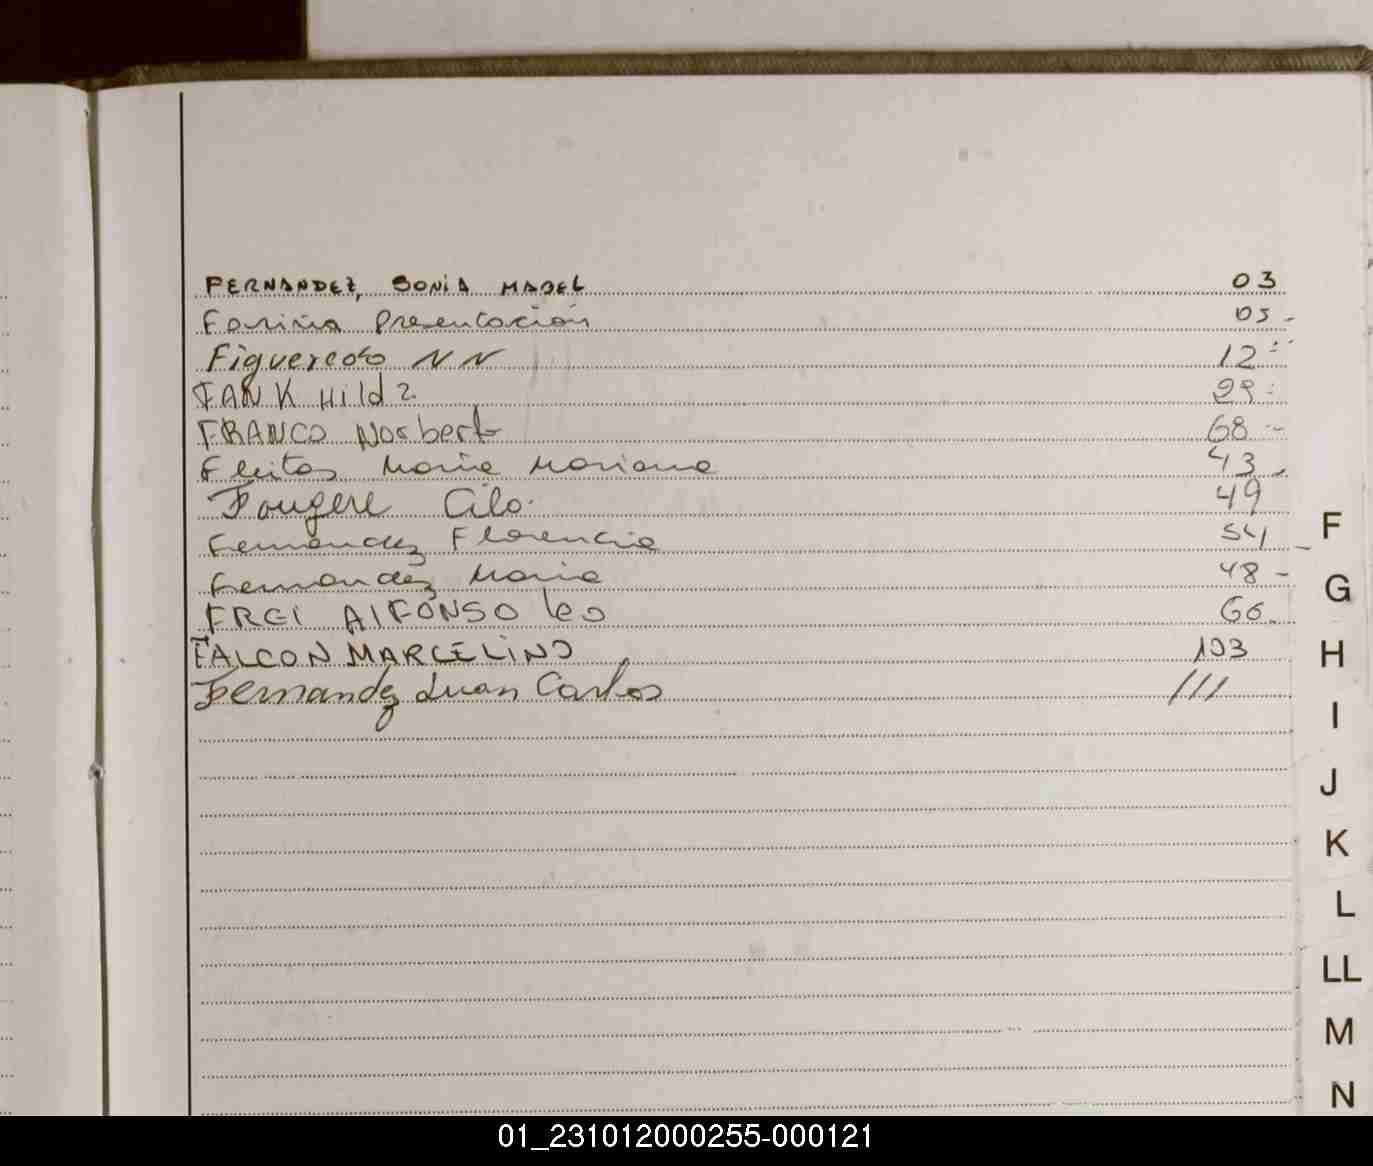 FERNANDEZ, SONIA MABEL 03
Fariña Presentación 05 -
Figueredo NN 12
FANK Hilda 29
FRANCO Norberto 68 -
Fleitas María Mariana 43
Fougere Cilo 49
Fernandez Florencia 54
Fernandez Maria 48 -
FREI AlFONSO leo 66
FALCON MARCELINO 103
Fernandez Juan Carlos 111
F
G
H
I
J
K
L
LL
M
N
01_231012000255-000121